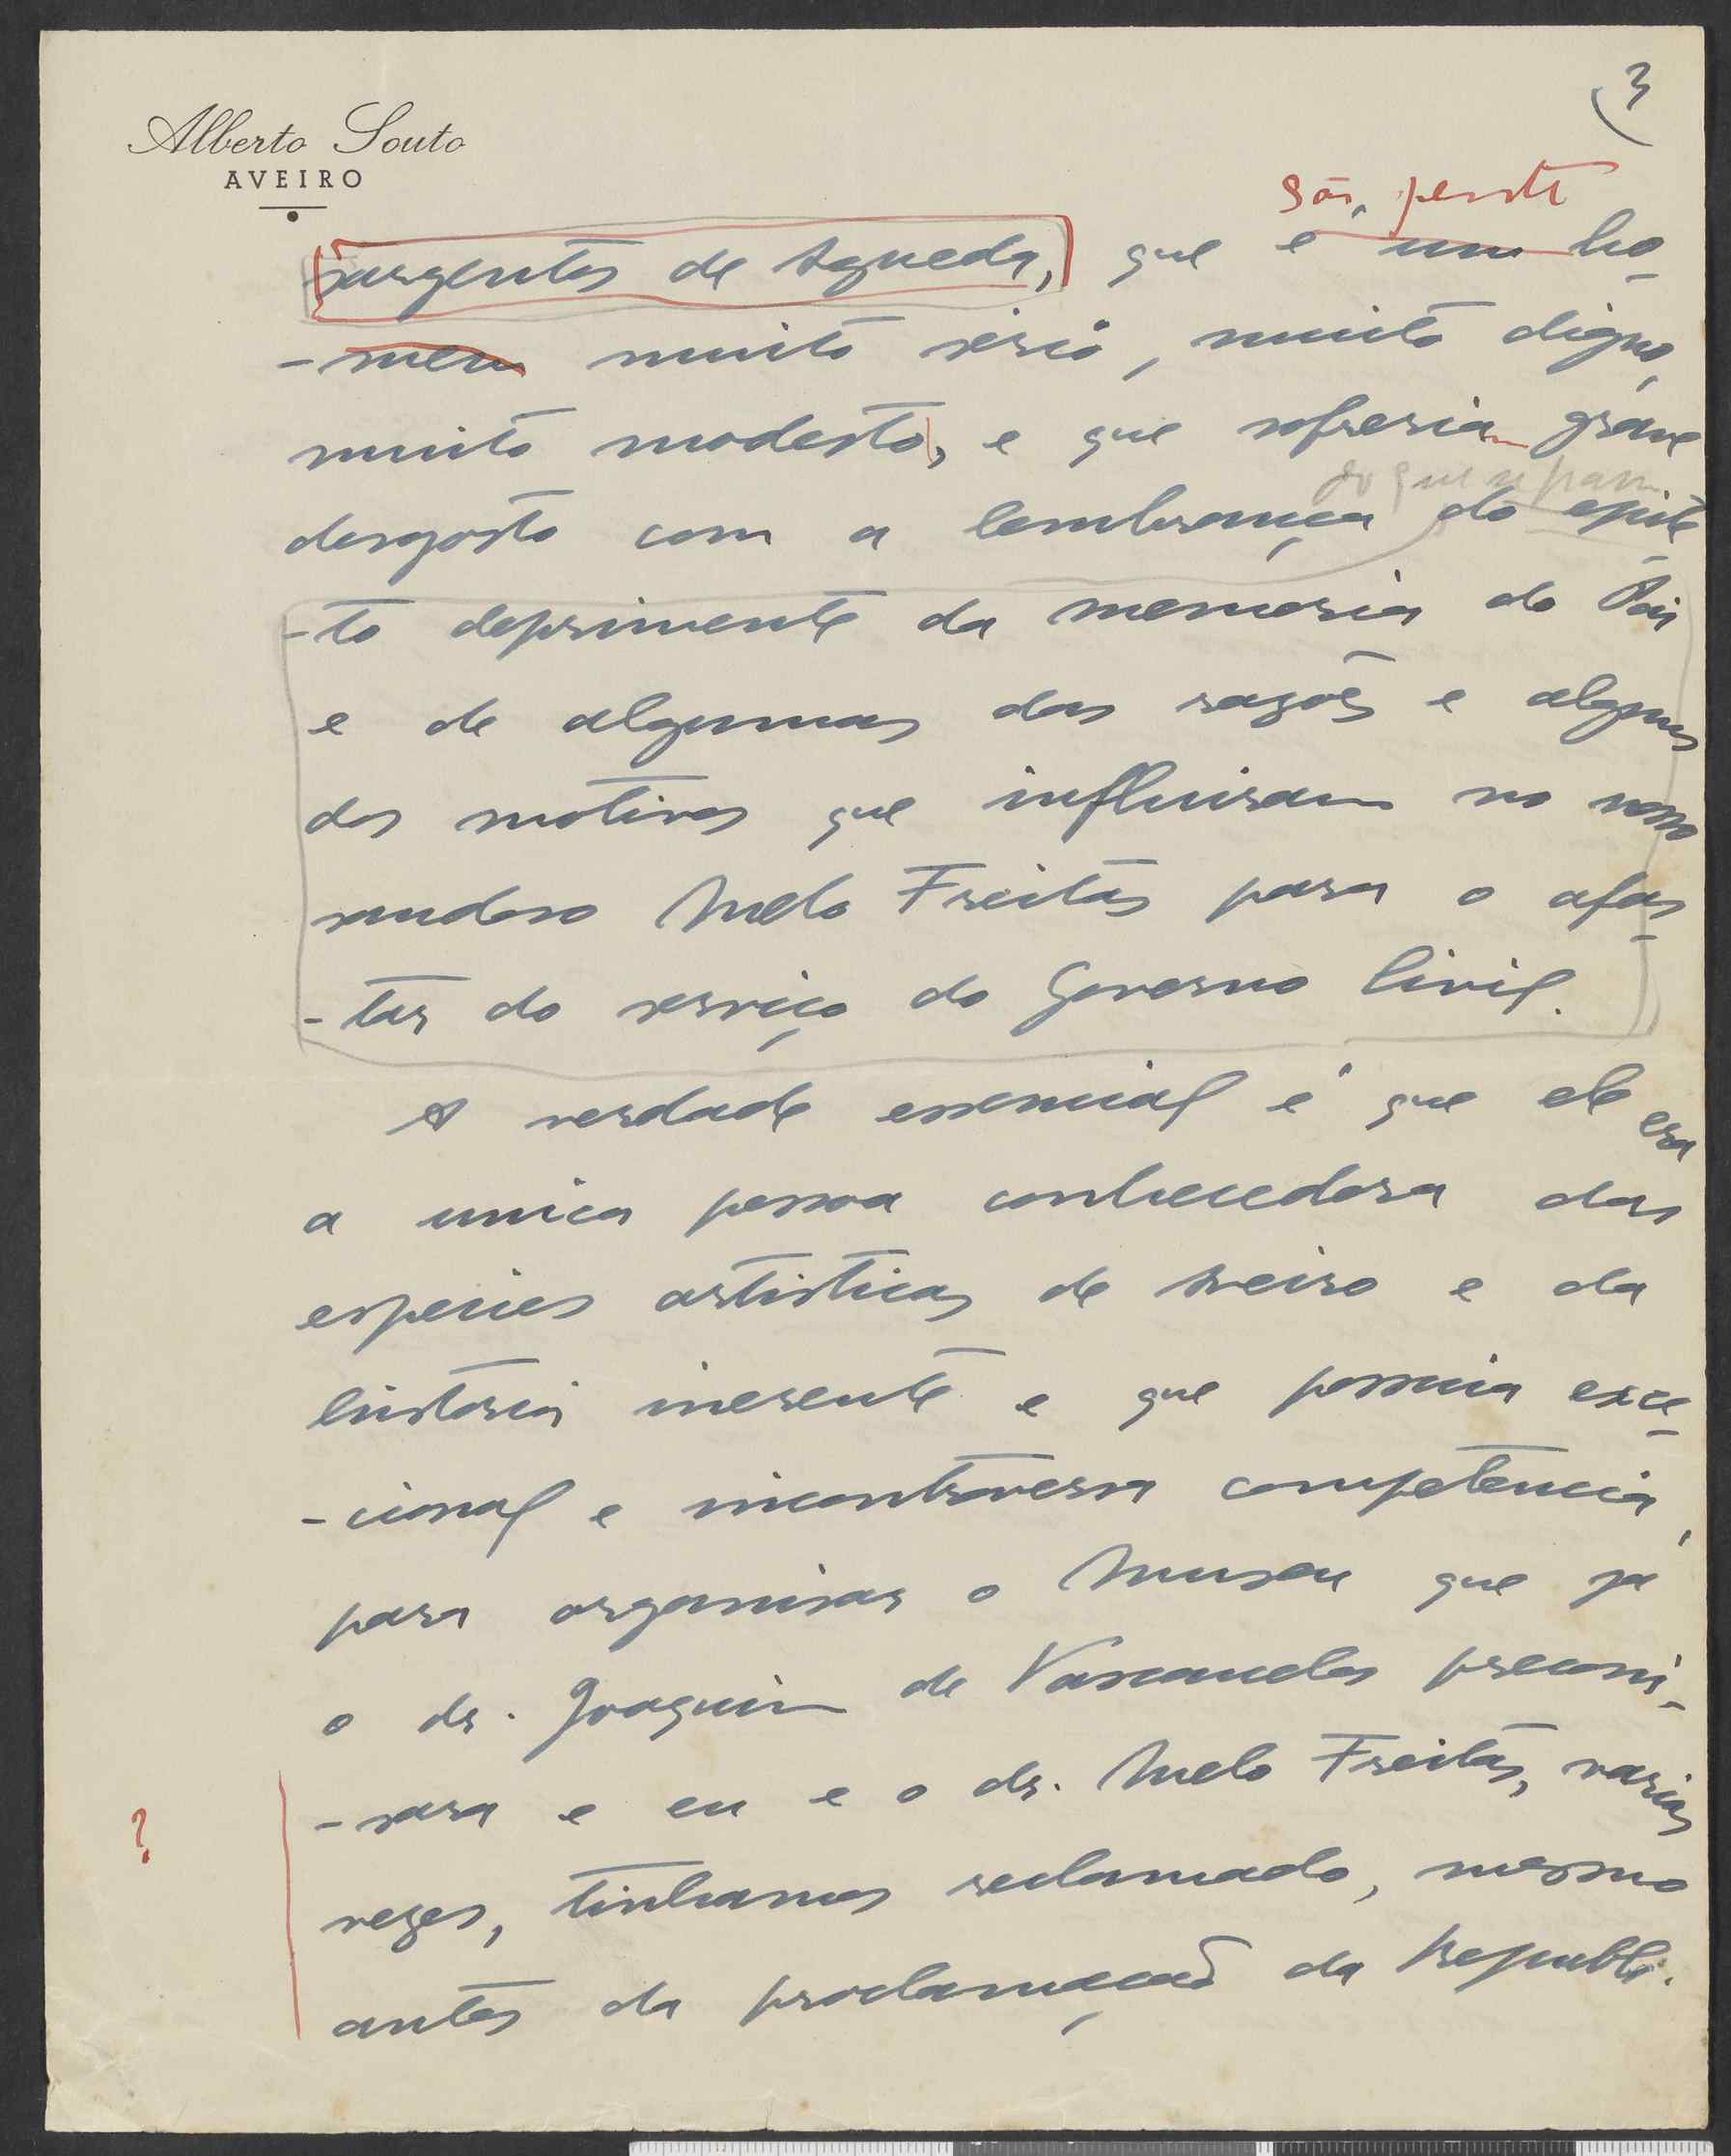 3
Alberto Souto
AVEIRO
são, gente
sargentos de Agueda, que e um ho-
-mem muito sério, muito digno,
muito modesto, e que sofreria grave
do que se passou
desgosto com a lembrança do epite-
-to deprimente da memoria do Pai
e de algumas das razões e alguns
dos motivos que influiram no nosso
saudoso Melo Freitas para o afas-
-tar do serviço do Governo Civil.
A verdade essencial é que ele era
a unica pessoa conhecedora das
especies artisticas de Aveiro e da
historia inerente e que possuia exce-
-cional e incontroversa competencia,
para organisar o Museu que já
o dr. Joaquim de Vasconcelos preconi-
-sara e eu e o dr. Melo Freitas, varias
?
vezes, tinhamos reclamado, mesmo
antes da proclamação da Republi-